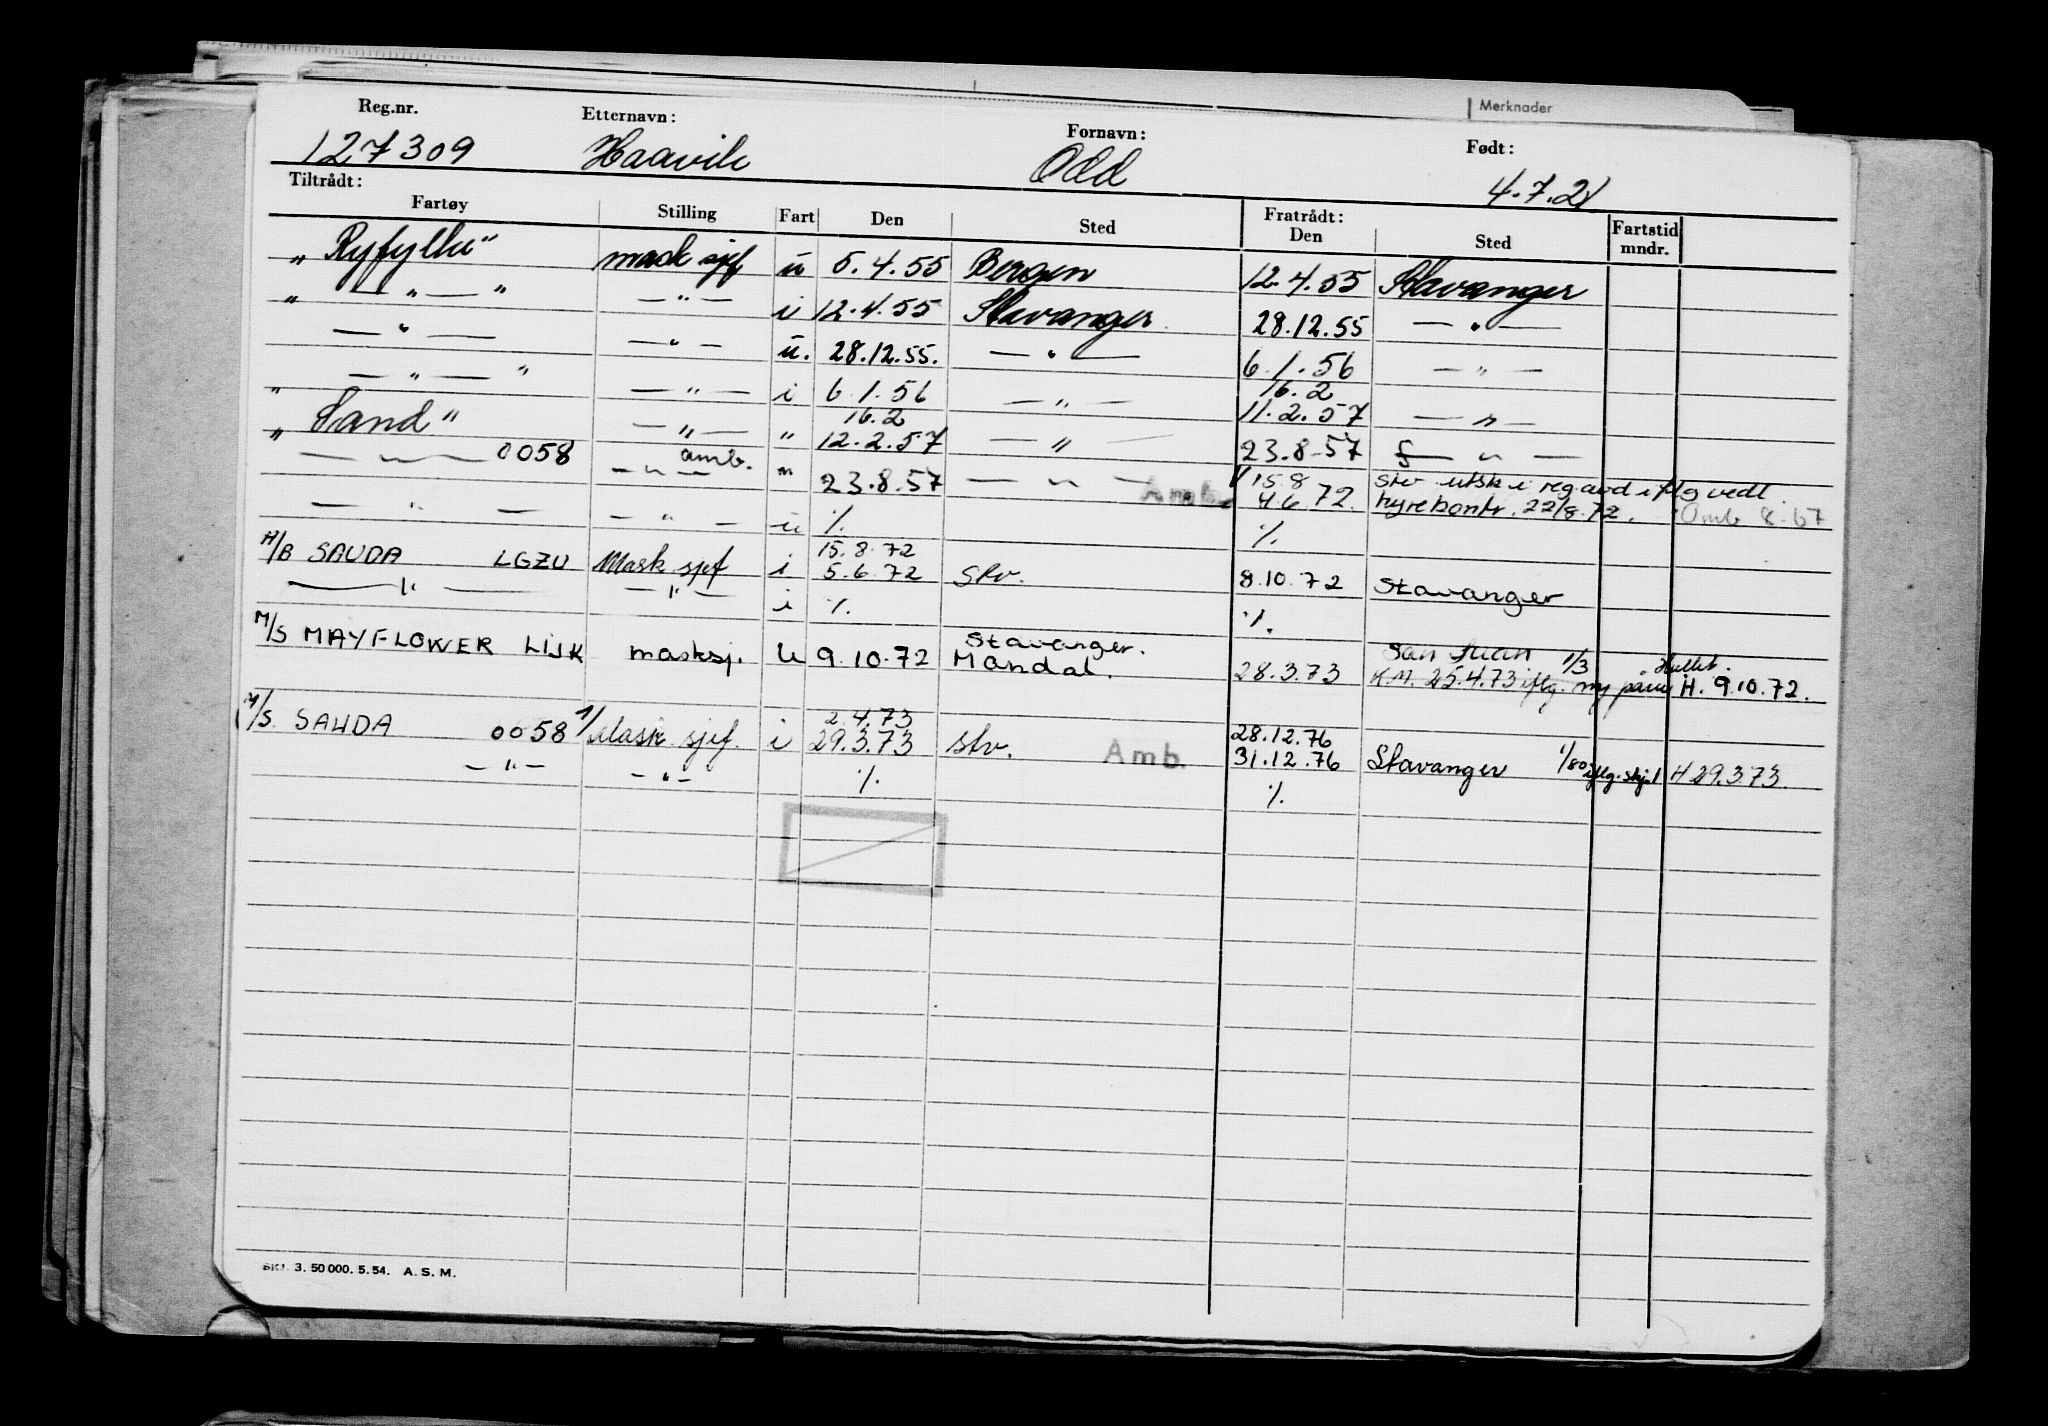 Merknader
Reg.nr. Etternavn: Fornavn: Født:
127309 Haavik Odd 4.7.21
Tiltrådt: Fratrådt:
Fartøy Stilling Fart Den Sted Den Sted Fartstid mndr.
"Ryfylke" mask sjef u 5.4.55 Bergen 12.4.55 Stavanger
" — " — " — " — i 12.4.55 Stavanger 28.12.55 — " —
— " — — " — u. 28.12.55. — " — 6.1.56 — " —
— " — " — " — i 6.1.56 — " — 16.2
" Sand" — " — " 16.2 12.2.57 — " — 11.2.57 — " —
" — " — 0058 amb. — " — " 23.8.57 — " — 23.8.57 — " —
Amb. 15.8 4.6.72. Stv utsk i reg avd iflg vedl. hyrekontr. 22/8.72. Amb 8-67
— " — — " — u %. %.
M/B SAUDA LGZU Mask sjef i 15.8.72 5.6.72 Stv. 8.10.72 Stavanger
— " — — " — i %. %.
M/S MAYFLOWER LIJK masksj. u 9.10.72 Stavanger. Mandal. 28.3.73 San Juan 1/3 K.M. 25.4.73 iflg. ny påm. H. 9.10.72.
M/S. SAUDA 0058 1/ Mask sjef. i 2.4.73 29.3.73 Stv. Amb. 28.12.76 31.12.76 Stavanger 1/80 iflg. skj.1 H 29.3.73.
— " — — " — %. %.
SKJ. 3. 50 000. 5. 54. A. S. M.